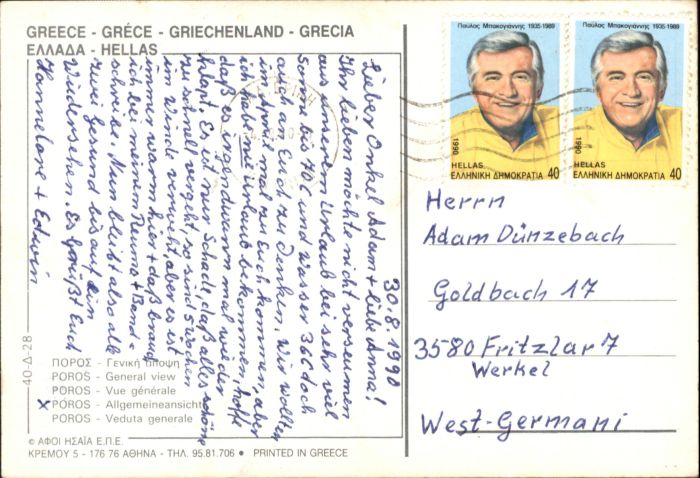 GREECE - GRÉCE - GRIECHENLAND - GRECIA
ΕΛΛΑΔΑ - HELLAS
30.8.1990
Lieber Onkel Adam + liebe Anna!
Ihr lieben möchte nicht verseumen
aus unserem Urlaub bei sehr viel
Sonne bis 40C und Wasser 36C doch
auch an Euch zu denken. Wir wollten
im April mal zu Euch kommen, aber
ich habe nie Urlaub bekommen, hoffe
daß es irgendwann mal wieder
klapt. Es ist nur Schade, daß alles schöne
zu schnell vergeht, so sind 5 Wochen
im Winde verweht, aber es ist
immer warm hier + daß brauch
ich bei meinem Reuma + Band-
scheiben. Nun bleibt also alle
zwei Gesund bis auf ein
Wiedersehen. Es Grüßt Euch
Hannelore + Edwin
40-Δ-28
ΠΟΡΟΣ - Γενική άποψη
POROS - General view
POROS - Vue générale
x POROS - Allgemeineansicht
POROS - Veduta generale
© ΑΦΟΙ ΗΣΑΪΑ Ε.Π.Ε.
ΚΡΕΜΟΥ 5 - 176 76 ΑΘΗΝΑ - ΤΗΛ. 95.81.706 • PRINTED IN GREECE
Παύλος Μπακογιάννης 1935-1989
1990
HELLAS
ΕΛΛΗΝΙΚΗ ΔΗΜΟΚΡΑΤΙΑ 40
Παύλος Μπακογιάννης 1935-1989
1990
HELLAS
ΕΛΛΗΝΙΚΗ ΔΗΜΟΚΡΑΤΙΑ 40
Herrn
Adam Dünzebach
Goldbach 17
3580 Fritzlar 7
Werkel
West-Germani